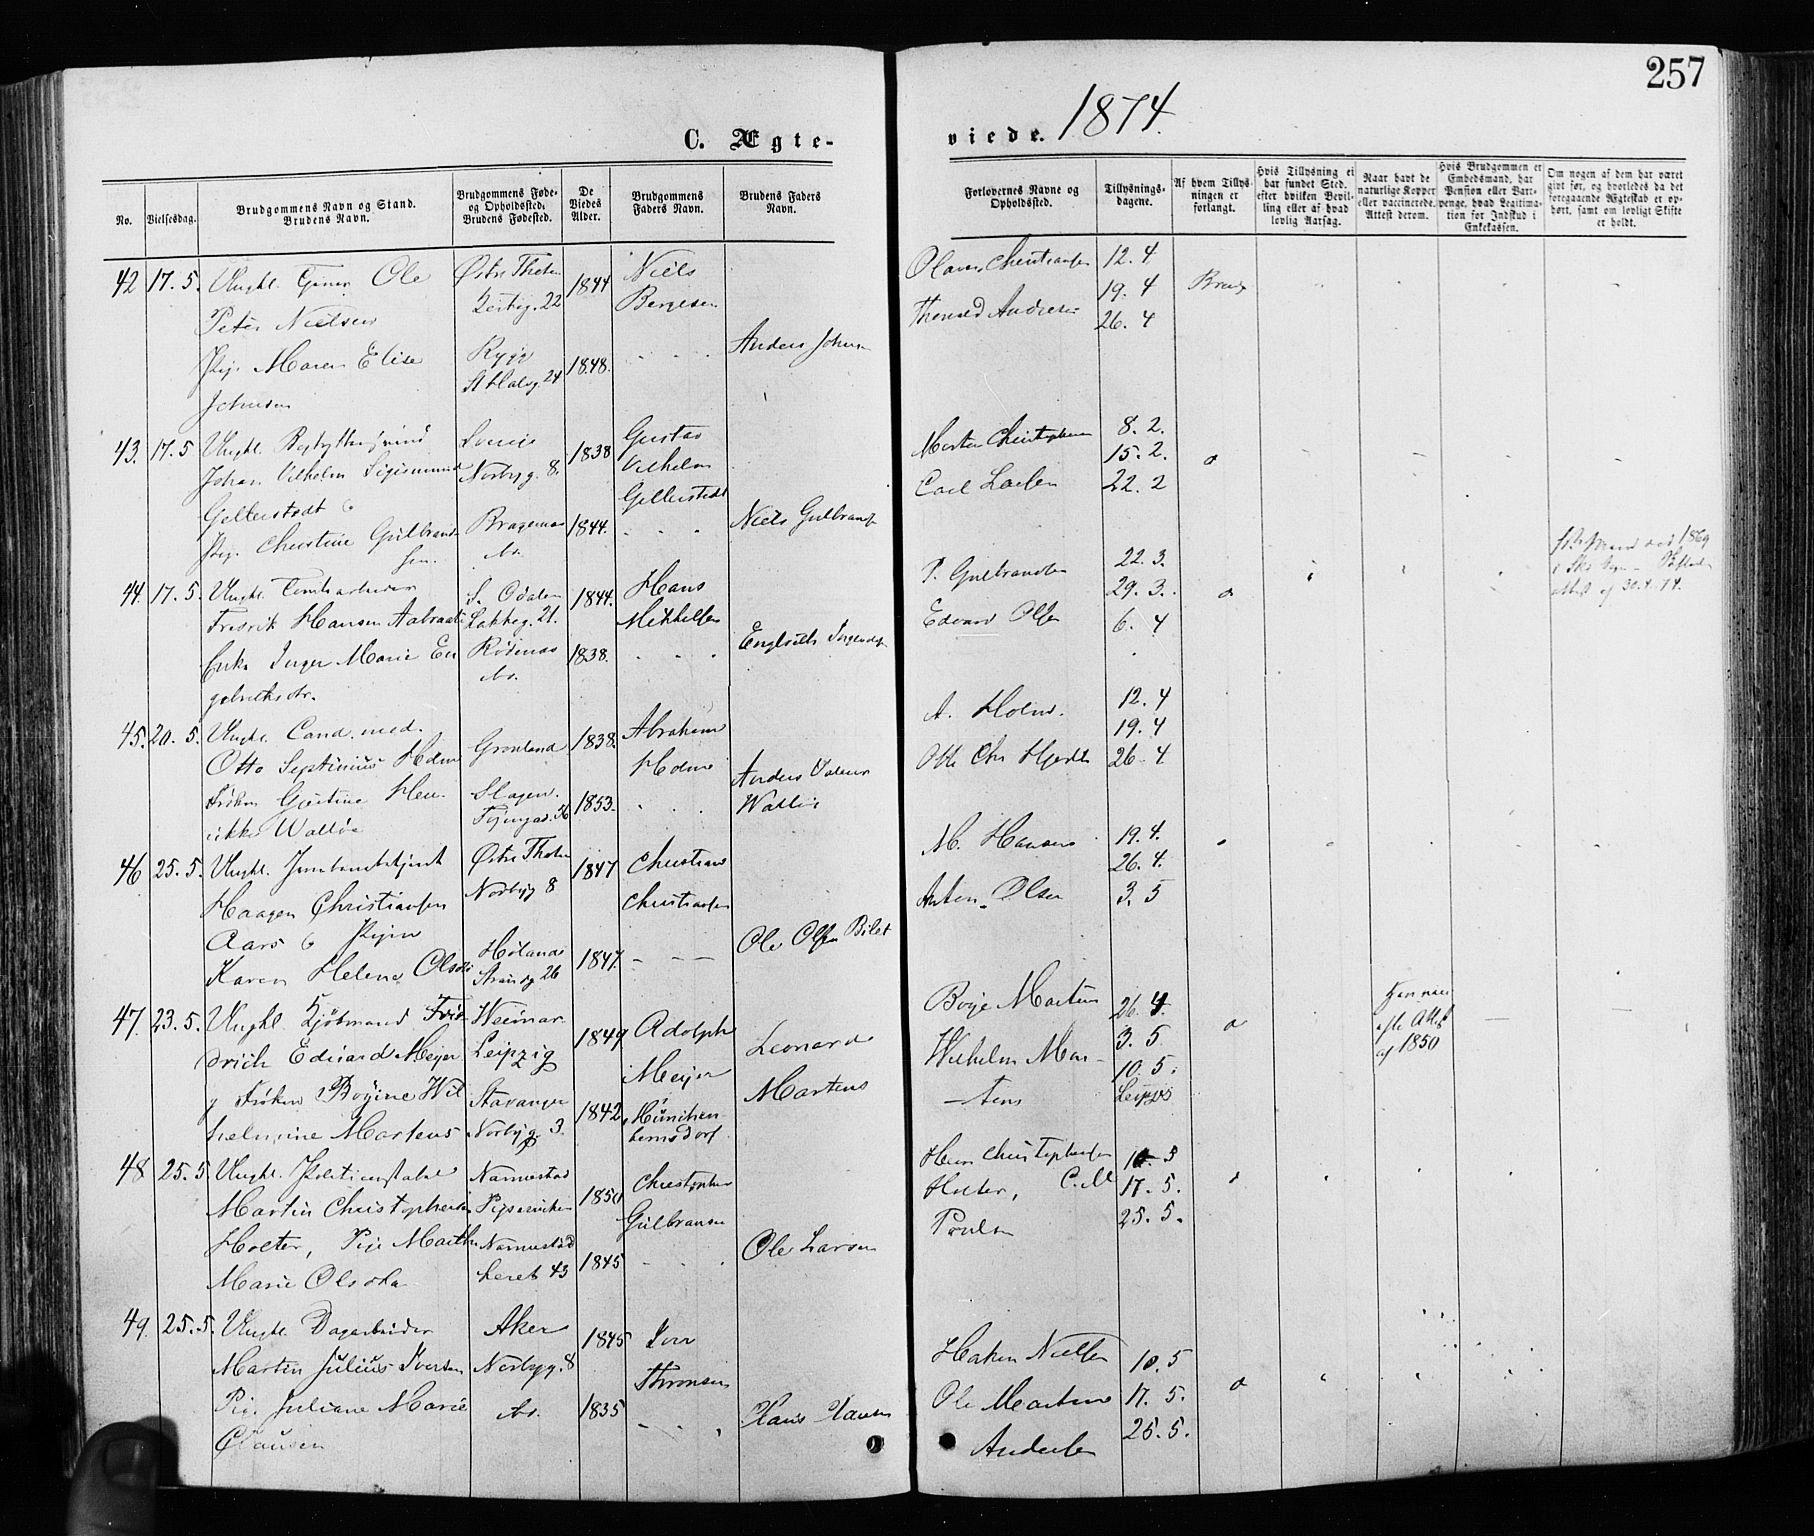 257
C. Ægte-
viede. 1874.
No.
Vielsesdag.
Brudgommens Navn og Stand.
Brudens Navn.
Brudgommens Føde-
og Opholdsted.
Brudens Fødested.
De
Viedes
Alder.
Brudgommens
Faders Navn.
Brudens Faders
Navn.
Forlovernes Navne og
Opholdssted.
Tillysnings-
dagene.
Af hvem Tillys-
ningen er
forlangt.
Hvis Tillysning ei
har fundet Sted,
efter hvilken Bevil-
ling eller af hvad
lovlig Aarsag.
Naar havt de
naturlige Kopper
eller vaccinerede.
Attest derom.
Hvis Brudgommen er
Embedsmand, har
Pension eller Var-
penge, hvad Legitima-
tion for Indskud i
Enkekassen.
Om nogen af dem har været
givt før, og hvorledes da det
foregaaende Ægteskab er op-
hørt, samt om lovligt Skifte
er holdt.
42 17. 5. Ungkl. Ole Østre Thoten 1844 Niels
Peter Nielsen 22 Bergesen
Pige Maren Elise Rygge 1848. Anders Johns
Johnsen 24
Olaves Christiansen 12. 4
19. 4
Andresen 26. 4
43. 17. 5 Ungkl. 1838 Gustav
Johan Vilhelm Sigismund Norbyg. 8. Vilhelm
Gellerstedt Gellerstedt
Pige Christine Gulbrand- Bragernæs 1844. Niels Gulbrands
sen. do.
Morten Christophersen 8. 2.
15. 2.
Carl Larsen 22. 2
44. 17. 5. Ungkl. S. Odalen 1844. Hans
Fredrik Hansen Lakkeg. 21. Mikkelsen
Enke Inger Marie En Rødenæs 1838. Engbreth
gebrethsdtr. do.
P. Gulbrandsen 22. 3.
29. 3.
Edvard Olsen 6. 4
1869
30. 4. 74.
45. 20. 5. Ungkl. Cand. med. Grønland 1838. Abraham
Otto Septimius Holm Holm
Frøken Gjertine Hen Slagen. 1853. Anders
rikke Walløe 56 Walløe
A. Holm. 12. 4
19. 4
Otto Chr Hjorth 26. 4
46 25. 5. Ungkl. Jernbanebetjent Østre Thoten 1847 Christian
Haagen Christiansen Norbyg 8 Christiansen
Aars & Pigen
Karen Helene Olsdtr Høland 1847. Ole Olsen Bilet
Strandg 26
M. Hansen 19. 4.
26. 4.
Anton Olsen 3. 5
47. 23. 5. Ungkl. Kjøbmand Frie Weimar. 1849 Adolph
drich Eduard Meijer Leipzig Meijer
g Frøken Boyine Wil Stavanger 1842 München- Leonard
helmine Martens Norbyg. 3. bernsdorf. Martens
Boije Martens 26. 4.
3. 5.
Wilhelm Mar- 10. 5.
tens Leipzig
efter Attest
af 1850
48 25. 5 Ungkl. Politiconstabel Nannestad 1850 Christopher
Martin Christophersen Pipervikens Gulbransen
Holter, Pige Marthe Nannestad
Marie Olsdtr Leret 43 1845 Ole Larsen
Hans Christophersen 10. 5
Holter, C. M. 17. 5.
Poulsen 25. 5.
49. 25. 5. Ungkl. Dagarbeider Aker 1845 Iver
Martin Julius Iversen Norbyg. 8 Thronsen
Pig. Juliane Marie do. 1835 Hans Hansen
Clausen
Haken Nielsen 10. 5
Ole Martin 17. 5.
Andersen 25. 5.